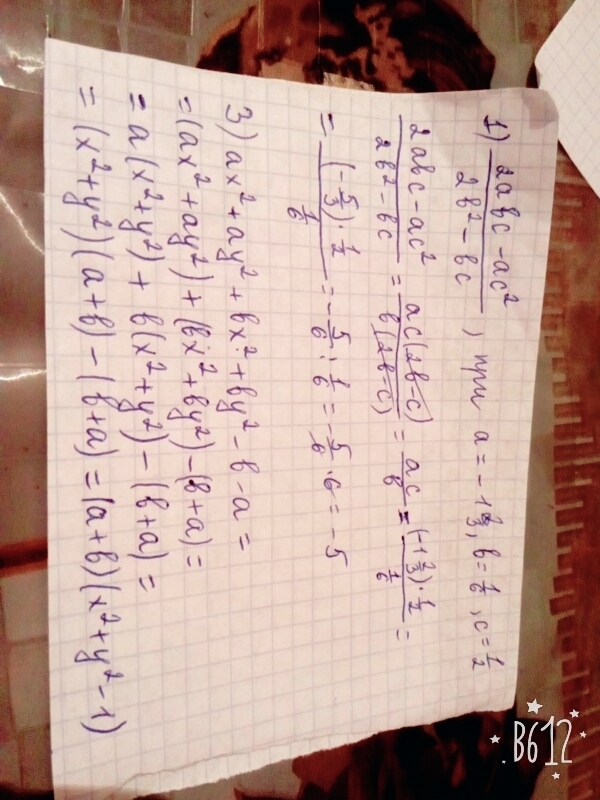 1) (2abc - ac²)/(2b² - bc), при a = -1 2/3, b = 1/6, c = 1/2
(2abc - ac²)/(2b² - bc) = ac(2b-c)/b(2b-c) = ac/b = ((-1 2/3) · 1/2)/(1/6) =
= ((-5/3) · 1/2)/(1/6) = -5/6 : 1/6 = -5/6 · 6 = -5
3) ax² + ay² + bx² + by² - b - a =
= (ax² + ay²) + (bx² + by²) - (b+a) =
= a(x² + y²) + b(x² + y²) - (b+a) =
= (x² + y²)(a+b) - (b+a) = (a+b)(x² + y² - 1)
B612